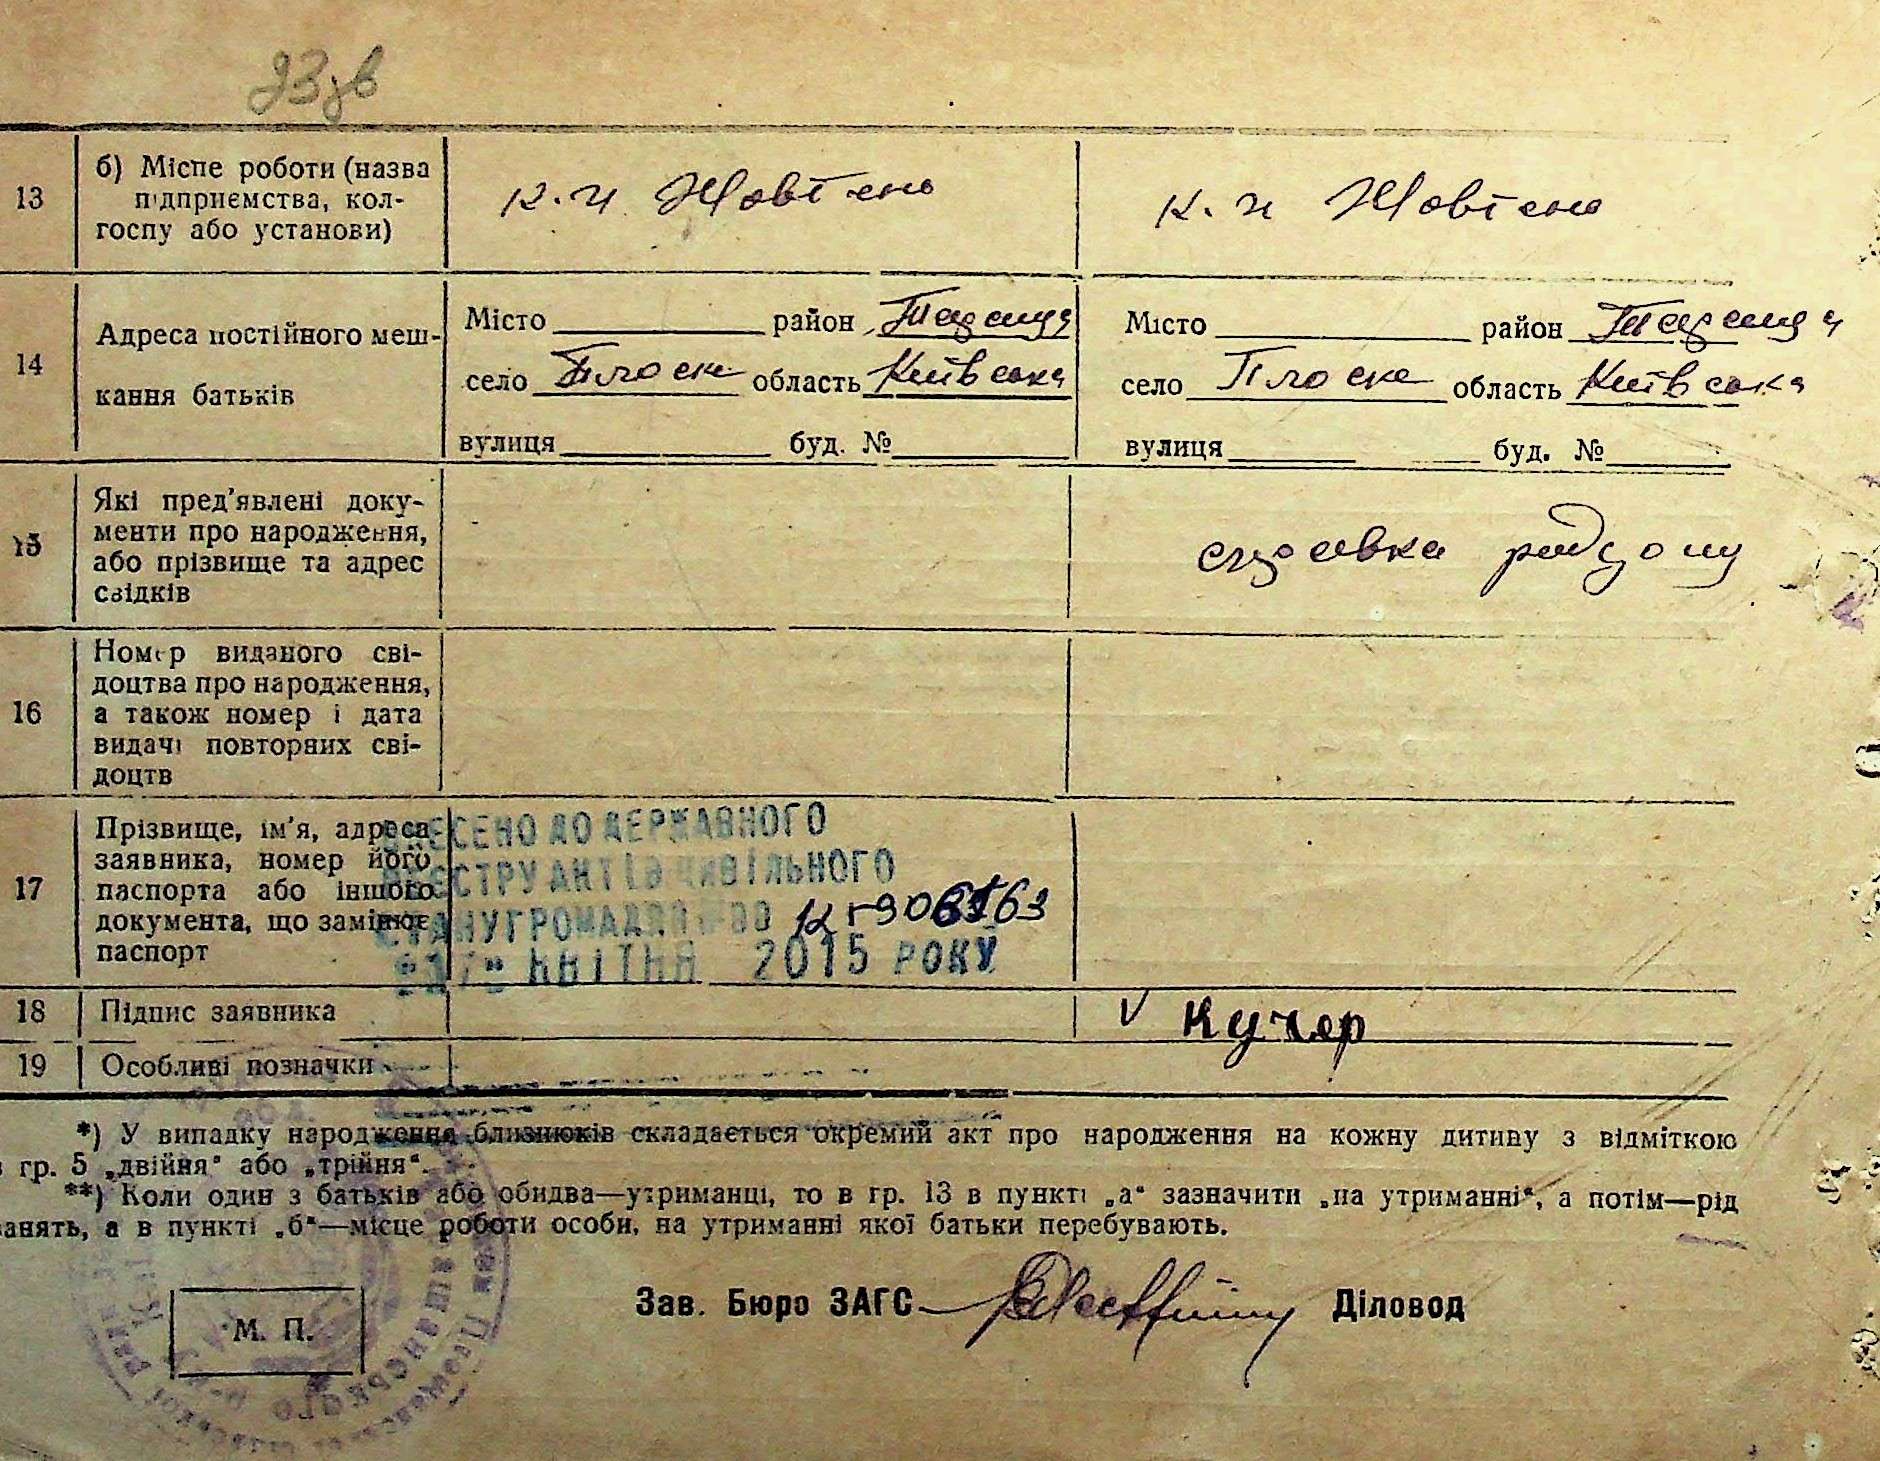 23 зв
13 б) Місце роботи (назва підприємства, колгоспу або установи)
к-п Жовтень
к-п Жовтень
14 Адреса постійного мешкання батьків
Місто район Таращ
село Плоске область Київська
вулиця буд. №
Місто район Таращ
село Плоске область Київська
вулиця буд. №
15 Які пред'явлені документи про народження, або прізвище та адрес свідків
справка роддому
16 Номер виданого свідоцтва про народження, а також номер і дата видачі повторних свідоцтв
17 Прізвище, ім'я, адреса заявника, номер його паспорта або іншого документа, що замінює паспорт
ВНЕСЕНО ДО ДЕРЖАВНОГО
РЕЄСТРУ АКТІВ ЦИВІЛЬНОГО
СТАНУ ГРОМАДЯН
КВІТНЯ 2015 РОКУ
18 Підпис заявника
V Кучер
19 Особливі позначки
*) У випадку народження близнюків складається окремий акт про народження на кожну дитину з відміткою
гр. 5 „двійня“ або „трійня“.
**) Коли один з батьків або обидва—утриманці, то в гр. 13 в пункті „а“ зазначити „на утриманні“, а потім—рід
анять, а в пункті „б“—місце роботи особи, на утриманні якої батьки перебувають.
М. П.
Зав. Бюро ЗАГС Діловод